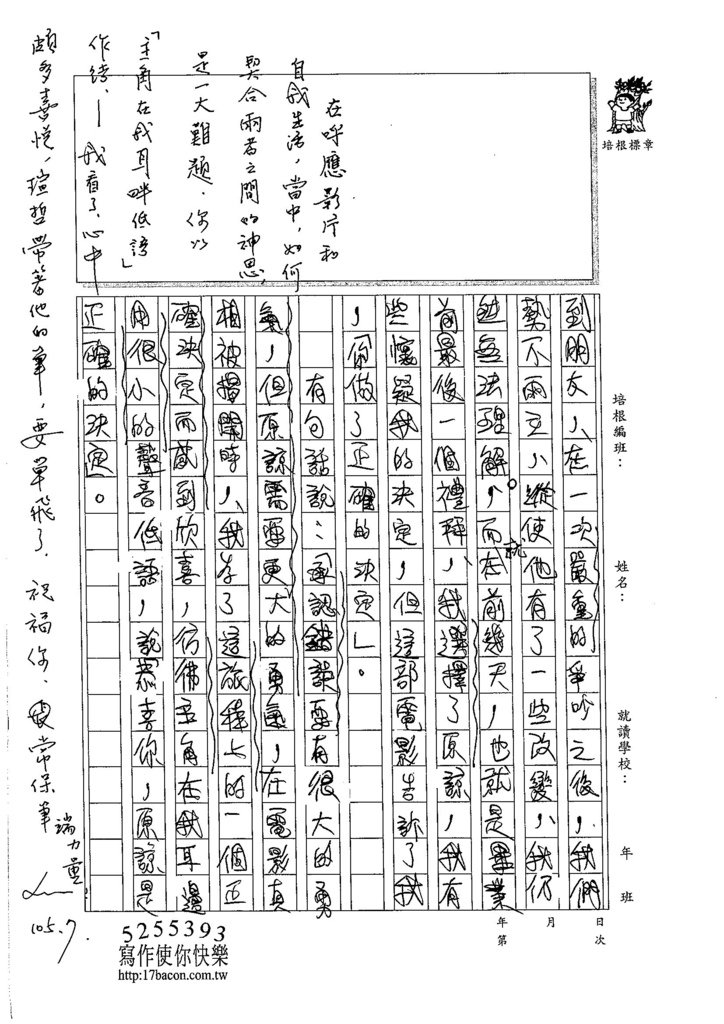 培根標章
在呼應影片和
自我生活，當中，如何
契合兩者之間的神思，
是一大難題．你以
「主角在我耳畔低語」
作結，我看了，心中
頗多喜悅，瑄哲帶著他的筆，要單飛了．祝福你、
105.7.
培根編班：
姓名：
就讀學校：
年 班
年 月 日
第 次
到朋友，在一次嚴重的爭吵之後，我們
勢不兩立，縱使他有了一些改變，我仍
無法理解。而就在前幾天，也就是畢業
前最後一個禮拜，我選擇了原諒，我有
些懷疑我的決定，但這部電影告訴了我
，你做了正確的決定」。
有句話說：承認錯誤要有很大的勇
氣，但原諒需要更大的勇氣，在電影真
相被揭開時，我為了這旅程上的一個正
確決定而感到欣喜，彷彿主角在我耳邊
用很小的聲音低語，說恭喜你，原諒是
正確的決定。
5255393
寫作使你快樂
http:17bacon.com.tw